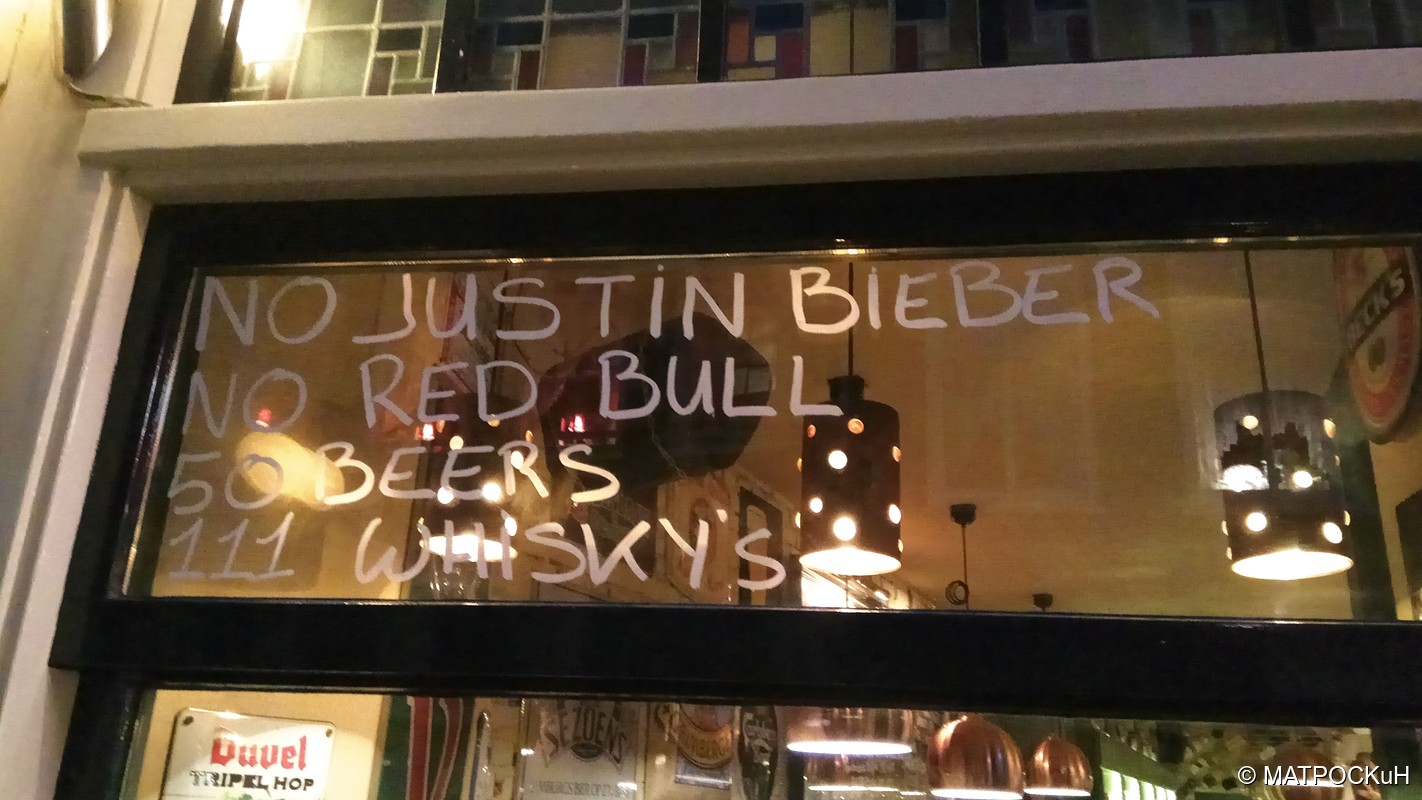 NO JUSTIN BIEBER
NO RED BULL
50 BEERS
111 WHISKY'S
BECK'S
Duvel
TRIPEL HOP
SEZOENS
© MATPOCKuH